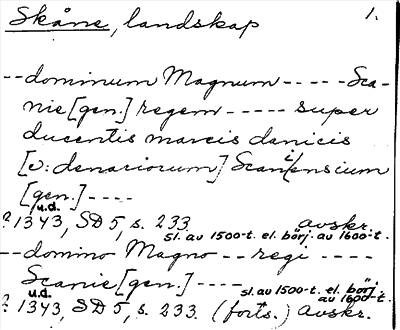 Skåne, landskap 1.
--dominum Magnum ----- Sca-
nie [gen.] regem ----- super
ducentis marcis danicis
[ɔ: denariorum] Scaniensium
[gen.] ----
u.d.
? 1343, SD 5, s. 233 avskr.
sl. av 1500-t. el. börj. av 1600-t.
--domino Magno -- regi ----
Scanie [gen.] ----
sl. av 1500-t. el. börj.
u.d. av 1600-t.
? 1343, SD 5, s. 233. (forts.) Avskr.